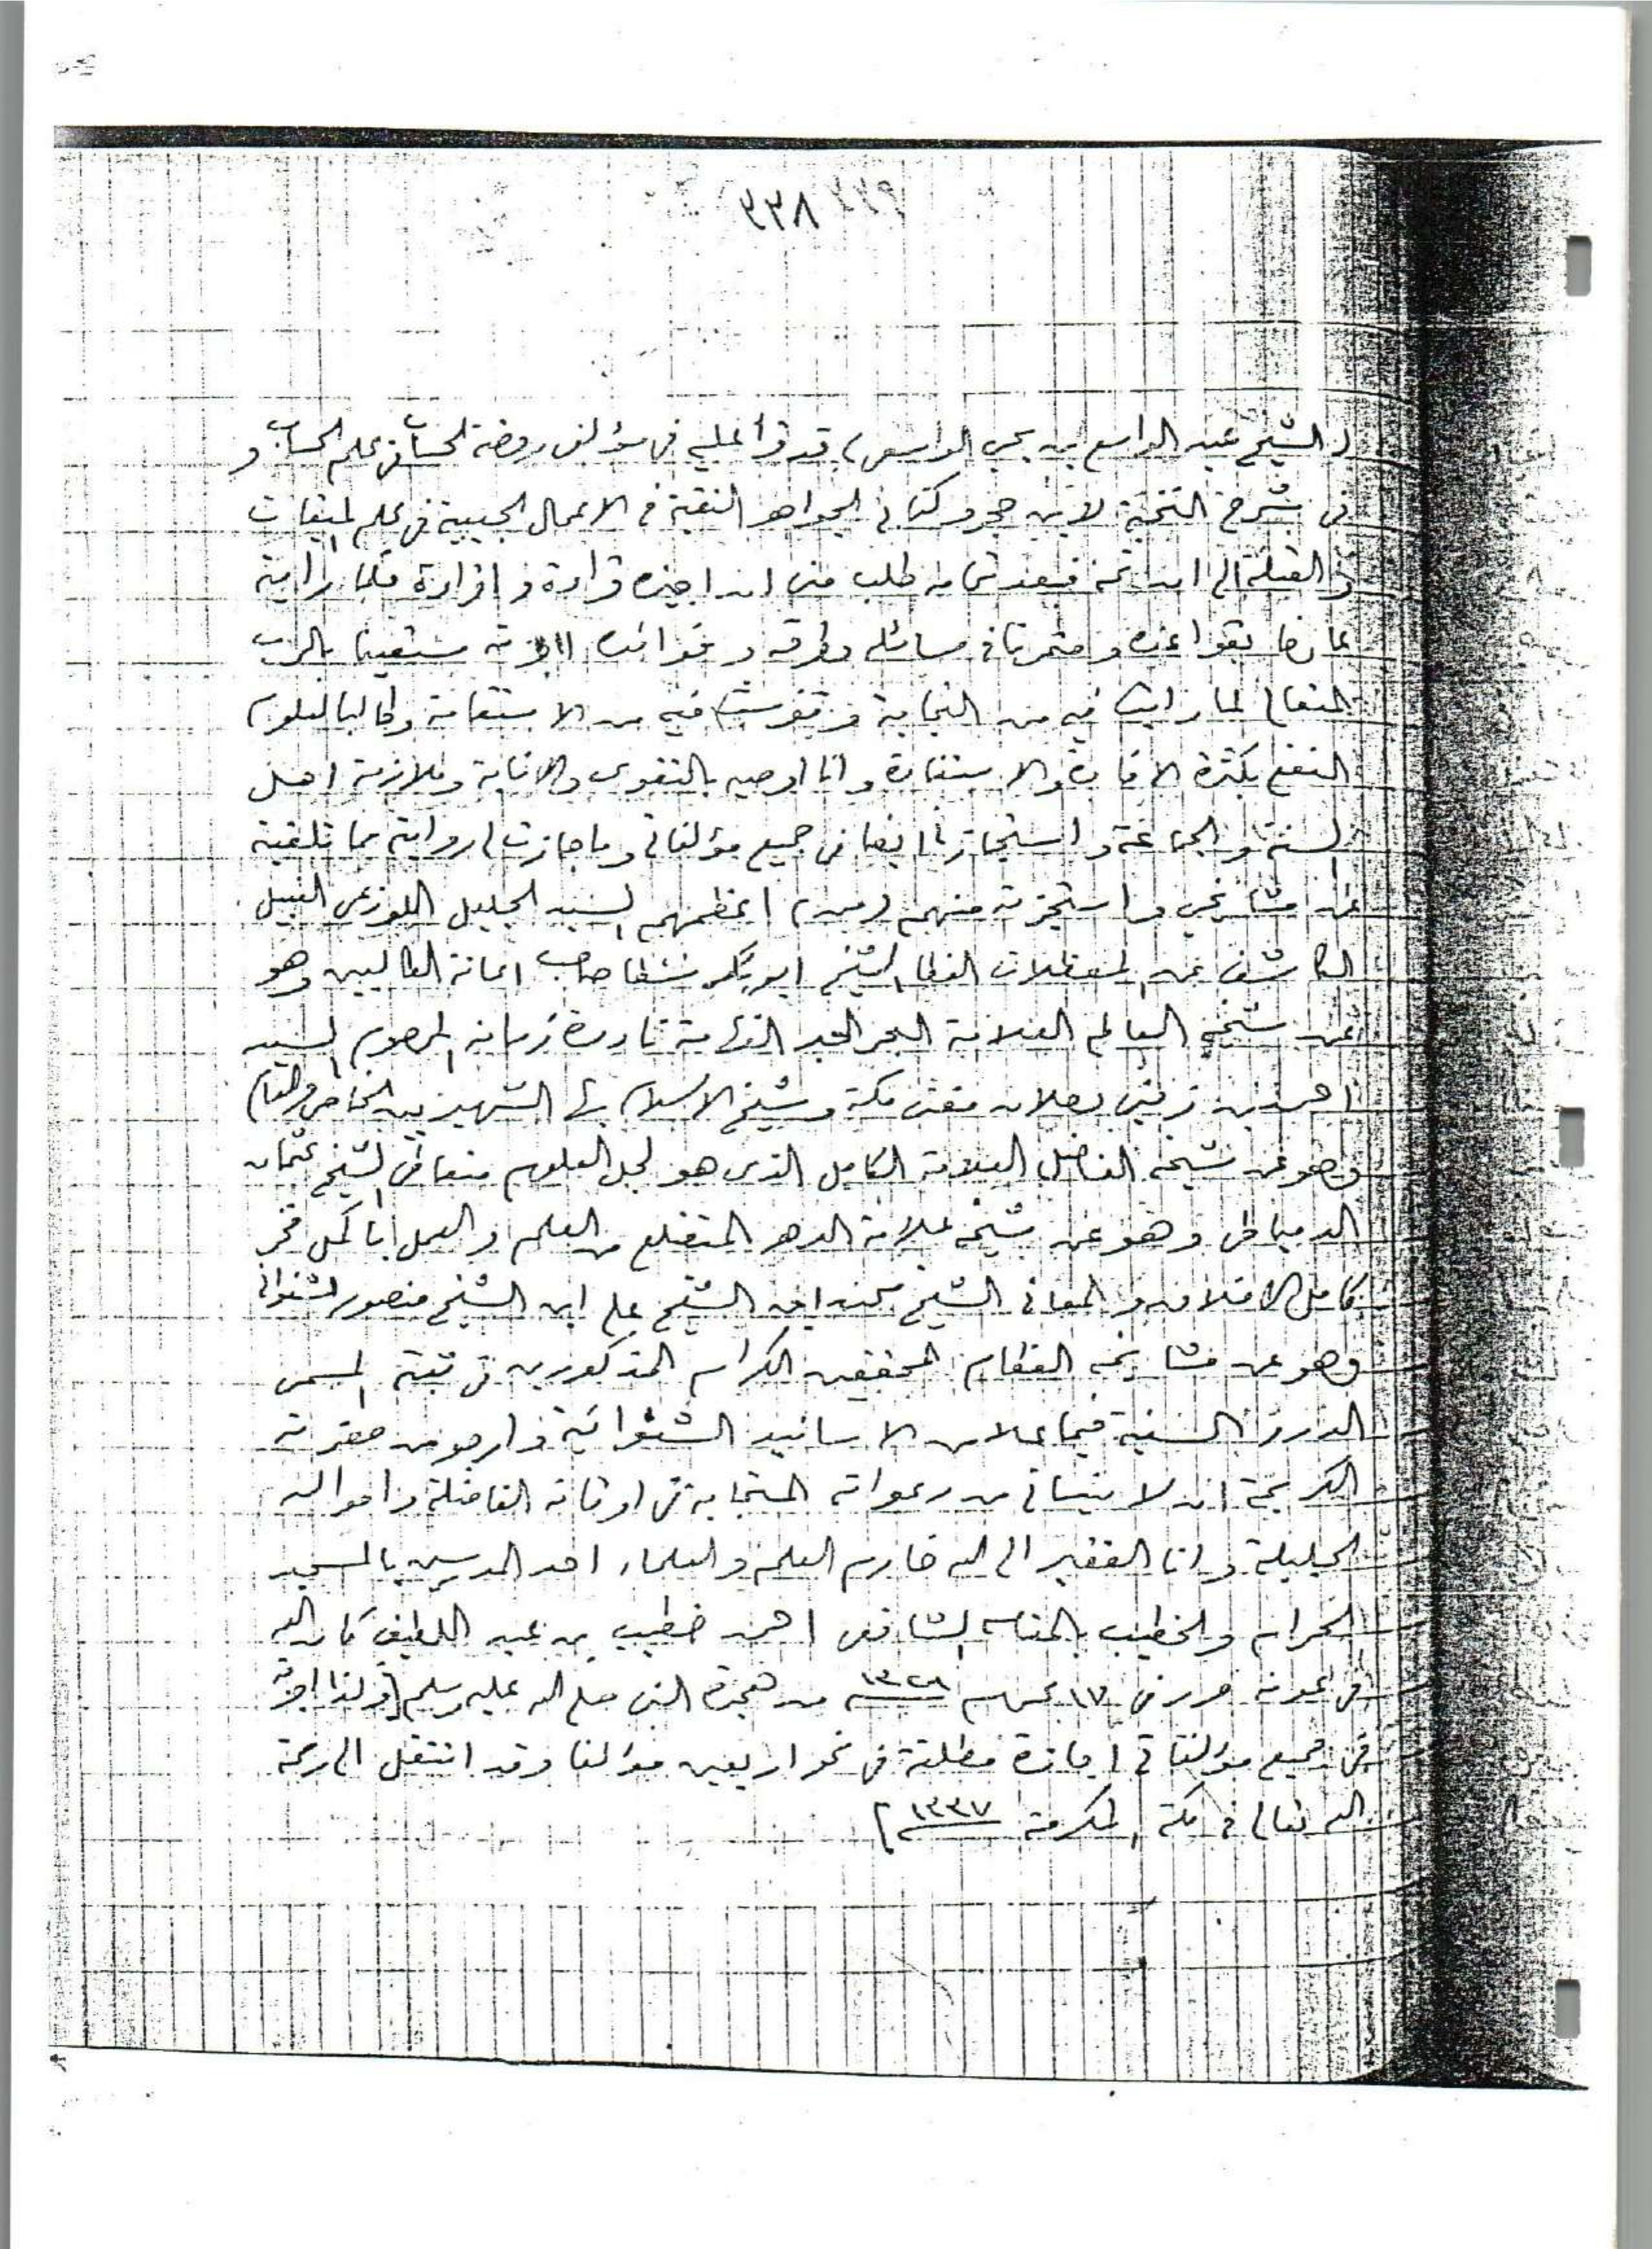 ٣٣٨
(الشيخ عبد الواسع بن يحي الواسعي) قد قرأ علي في مؤلفي روضة الحساب في علم الحساب و
في شرح النخبة لابن حجر وكتابي الجواهر النقية في الاعمال الجيبية في علم الميقات
و القبلة الى ان اتمه فبعد تمامه طلب مني ان اجيزه قراءة و اقراءه فلما رأيته
عارفا بقواعده و متمرنا في مسائله وطرقه و فوائده اجزته مستعينا بالرب
المتعال لما رأيت فيه من النجابة و تفرست فيه من الاستقامة وطالبا لعلوم
النفع بكثرة الافادة والاستفادة وانا اوصيه بالتقوى والانابة وملازمة اهل
السنة و الجماعة و استجازنا ايضا في جميع مؤلفاتي وما جازت لي روايته مما تلقيته
عن مشايخي و استجزته منهم (من) اعظمهم السيد الجليل اللوذعي النبيل
الكاشف عن المعضلات الغطا الشيخ ابو بكر شطا صاحب اعانة الطالبين وهو
عن شيخه العالم العلامة البحر الحبر الفهامة نادرة زمانه المرحوم السيد
احمد بن زيني دحلان مفتي مكة وشيخ الاسلام بها الشهير بين الخاص والعام
وهو عن شيخه الفاضل العلامة الكامل الذي هو لجل العلوم متعاطي الشيخ عثمان
الدمياطي وهو عن شيخه علامة الدهر المتضلع من العلم و العمل باكمل فخر
كامل الاخلاق و المعاني الشيخ محمد ابن الشيخ علي ابن الشيخ منصور الشنواني
وهو عن مشايخه العظام المحققين الكرام المذكورين في ثبته المسمى
الدرر السنية فيما علا من الاسانيد الشنوانية و ارجو من حضرته
الكريمة ان لا ينساني من دعواته المستجابة في اوقاته الفاضلة و احواله
الجليلة و انا الفقير الى الله خادم العلم و العلماء احد المدرسين بالمسجد
الحرام والخطيب بالمقام الشافعي احمد خطيب بن عبد اللطيف كان الله
في عونه حرر في ١٧ محرم ١٣٢٨ من هجرة النبي صلى الله عليه وسلم (وكذا اجزته
في جميع مؤلفاتي اجازة مطلقة في نحو اربعين مؤلفا وقد انتقل الى رحمة
الله تعالى في مكة المكرمة ١٣٣٧)